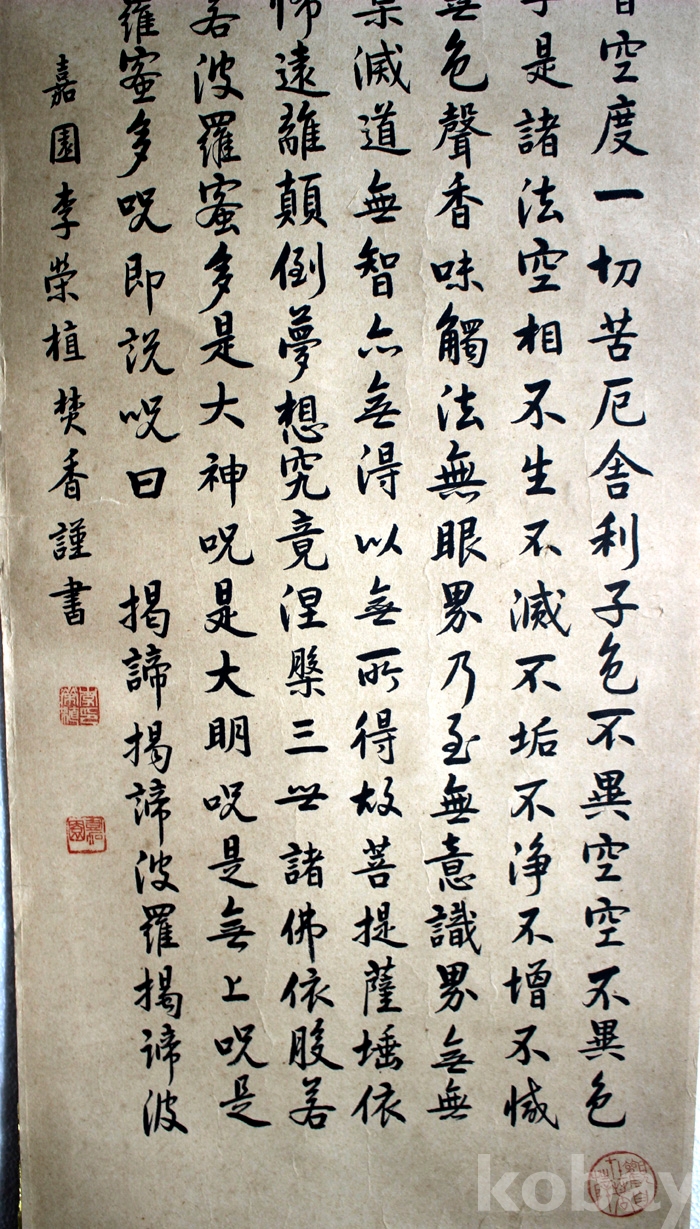 皆空度一切苦厄舍利子色不異空空不異色
子是諸法空相不生不滅不垢不净不增不㓕
無色聲香味觸法無眼界乃至無意識界無無
集滅道無智亦無得以無所得故菩提薩埵依
怖遠離顛倒夢想究竟涅槃三世諸佛依般若
若波羅蜜多是大神呪是大明呪是無上呪是
羅蜜多呪即説呪曰 揭諦揭諦波羅揭諦波
嘉園李荣植焚香謹書
kobay